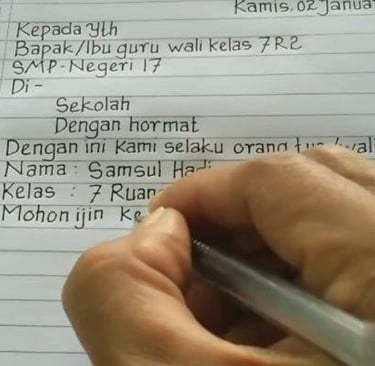 Kamis, 02 Janua
Kepada Yth
Bapak/Ibu guru wali kelas 7R2
SMP-Negeri 17
Di-
Sekolah
Dengan hormat
Dengan ini Kami selaku orang
Nama : Samsul
Kelas : 7 Ruan
Mohon ijin Ke